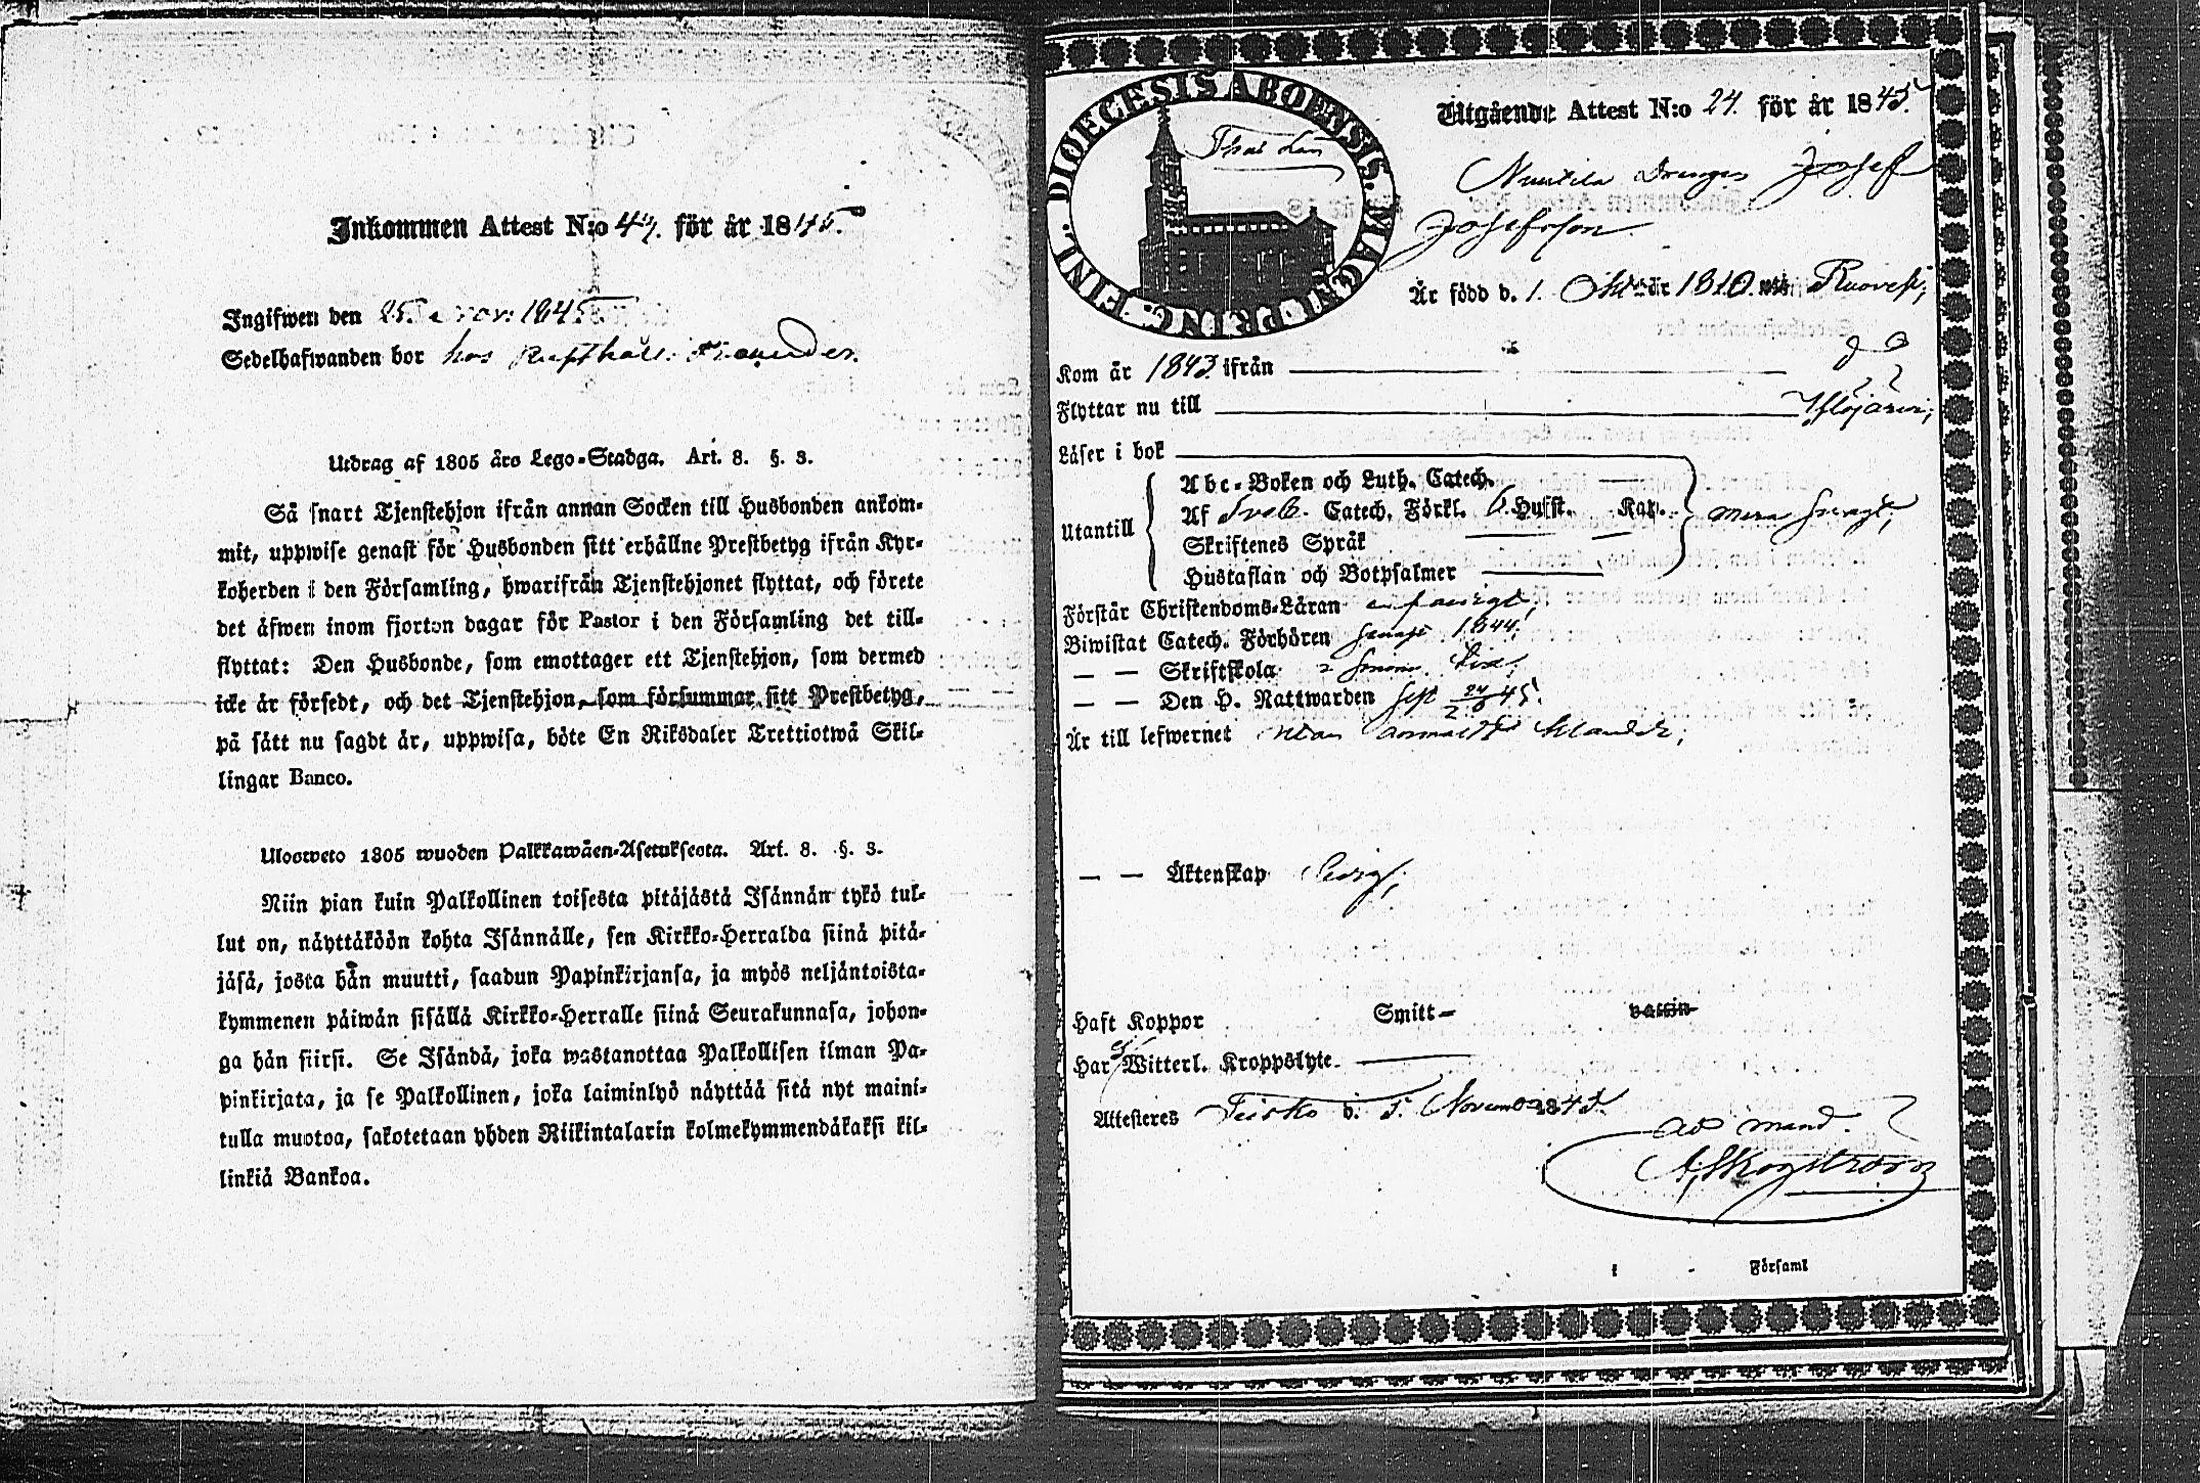 Inkommen Attest N:o 47. för år 1845.
Ingifwen den 25. nov. 1845
Sedelhafwanden bor hos
Utdrag af 1805 års Lego-Stadga. Art. 8. §. 3.
Så snart Tjenstehjon ifrån annan Socken till Husbonden ankom-
mit, uppwise genast för Husbonden sitt erhållne Prestbetyg ifrån Kyr-
koherden i den Församling, hwarifrån Tjenstehjonet flyttat, och förete
det äfwen inom fjorton dagar för Pastor i den Församling det till-
flyttat: Den Husbonde, som emottager ett Tjenstehjon, som dermed
icke är försedt, och det Tjenstehjon, som försummar sitt Prestbetyg,
på sätt nu sagdt är, uppwisa, böte En Riksdaler Trettiotwå Skil-
lingar Banco.
Ulosweto 1805 wuoden Palkkawäen-Asetuksesta. Art. 8. §. 3.
Niin pian kuin Palkollinen toisesta pitäjästä Isännän tykö tul-
lut on, näyttäköön kohta Isännälle, sen Kirkko-Herralda siinä pitä-
jäsä, josta hän muutti, saadun Papinkirjansa, ja myös neljäntoista-
kymmenen päiwän sisällä Kirkko-Herralle siinä Seurakunnasa, johon-
ga hän siirsi. Se Isändä, joka wastanottaa Palkollisen ilman Pa-
pinkirjata, ja se Palkollinen, joka laiminlyö näyttää sitä nyt maini-
tulla muotoa, sakotetaan yhden Riikintalarin kolmekymmendäkaksi kil-
linkiä Bankoa.
DIOECESIS ABOENSIS. MAGNI PRINC. FINL.
Utgående Attest N:o 24. för år 1845.
Drengen Josef
Josefsson.
Är född d. 1. Okt. år 1810. Ruovesi;
Kom år 1843 ifrån
Flyttar nu till Ylöjärvi;
Läser i bok
Utantill
Abc-Boken och Luth. Catech.
Af Sveb. Catech. Förkl. 6. Hufst. Kap.
Skriftenes Språk
Hustaflan och Botpsalmer
Förstår Christendoms-Läran
Biwistat Catech. Förhören 1844;
— — Skriftskola
— — Den H. Nattwarden Sept 45.
Är till lefwernet utan
— — Äktenskap ledig;
Haft Koppor Smitt- vaccin-
Har ej Witterl. Kroppslyte.
Attesteres Teisko d. 5. Novemb 1845.
ad mand.
A. Skogström
Församl